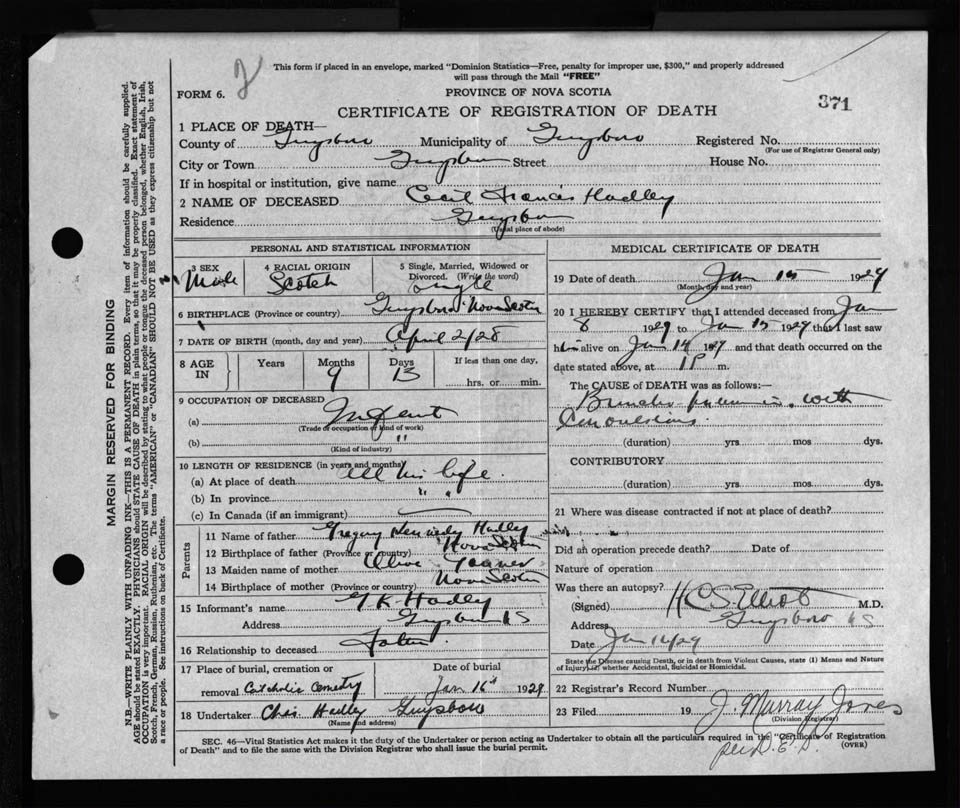 2
This form if placed in an envelope, marked "Dominion Statistics—Free, penalty for improper use, $300," and properly addressed
will pass through the Mail "FREE"
FORM 6. PROVINCE OF NOVA SCOTIA
371
CERTIFICATE OF REGISTRATION OF DEATH
1 PLACE OF DEATH—
County of Guysboro Municipality of Guysboro Registered No.
(For use of Registrar General only)
City or Town Guysboro Street House No.
If in hospital or institution, give name
2 NAME OF DECEASED Cecil Francis Hadley
Residence Guysboro
(Usual place of abode)
PERSONAL AND STATISTICAL INFORMATION
3 SEX Male
4 RACIAL ORIGIN Scotch
5 Single, Married, Widowed or Divorced. (Write the word) Single
6 BIRTHPLACE (Province or country) Guysboro Nova Scotia
7 DATE OF BIRTH (month, day and year) April 2/28
8 AGE IN Years Months 9 Days 13 If less than one day,
hrs. or min.
9 OCCUPATION OF DECEASED
(a) Infant
(Trade of occupation or kind of work)
(b) "
(Kind of industry)
10 LENGTH OF RESIDENCE (in years and months)
(a) At place of death All his life
(b) In province " "
(c) In Canada (if an immigrant)
Parents
11 Name of father Gregory Kennedy Hadley
12 Birthplace of father (Province or country) Nova Scotia
13 Maiden name of mother Olive
14 Birthplace of mother (Province or country) Nova Scotia
15 Informant's name G. K. Hadley
Address Guysboro NS
16 Relationship to deceased Father
17 Place of burial, cremation or
removal Catholic Cemetry
Date of burial
Jan 16th 1929
18 Undertaker Chas Hadley Guysboro
(Name and address)
MEDICAL CERTIFICATE OF DEATH
19 Date of death Jan 15 1929
(Month, day and year)
20 I HEREBY CERTIFY that I attended deceased from Jan
8 1929 to Jan 15 1929 that I last saw
him alive on Jan 14 1929 and that death occurred on the
date stated above, at 1 P m.
The CAUSE of DEATH was as follows:—
Broncho-pneumonia with
Convulsions
(duration) yrs mos dys.
CONTRIBUTORY
(duration) yrs. mos. dys.
21 Where was disease contracted if not at place of death?
Did an operation precede death? Date of
Nature of operation
Was there an autopsy?
(Signed) M.D.
Address Guysboro NS
Date Jan 16/29
State the Disease causing Death, or in death from Violent Causes, state (1) Means and Nature
of Injury, (2) whether Accidental, Suicidal or Homicidal.
22 Registrar's Record Number
23 Filed 19 J. Murray Jones
(Division Registrar)
per D.E.J.
SEC. 46—Vital Statistics Act makes it the duty of the Undertaker or person acting as Undertaker to obtain all the particulars required in the "Certificate of Registration
of Death" and to file the same with the Division Registrar who shall issue the burial permit. (OVER)
MARGIN RESERVED FOR BINDING
N.B.—WRITE PLAINLY WITH UNFADING INK—THIS IS A PERMANENT RECORD. Every item of information should be carefully supplied.
AGE should be stated EXACTLY. PHYSICIANS should STATE CAUSE OF DEATH in plain terms, so that it may be properly classified. Exact statement of
OCCUPATION is very important. RACIAL ORIGIN will be described by stating to what people or tongue the deceased person belonged, whether English, Irish,
Scotch, French, German, Russian, Ruthenian, etc. The terms "AMERICAN" or "CANADIAN" SHOULD NOT BE USED as they express citizenship but not
a race or people. See instructions on back of Certificate.